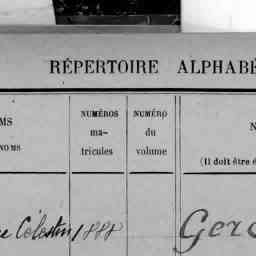 RÉPERTOIRE ALPHABÉ
MS
NOMS
NUMÉROS
ma-
tricules
NUMÉRO
du
volume
N
(Il doit être é
Célestin 1888
Ger